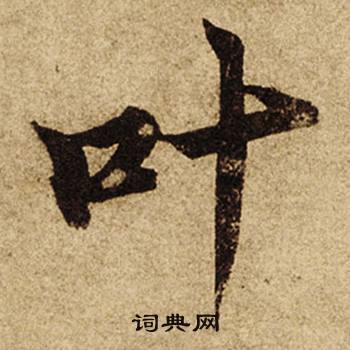 叶
词典网